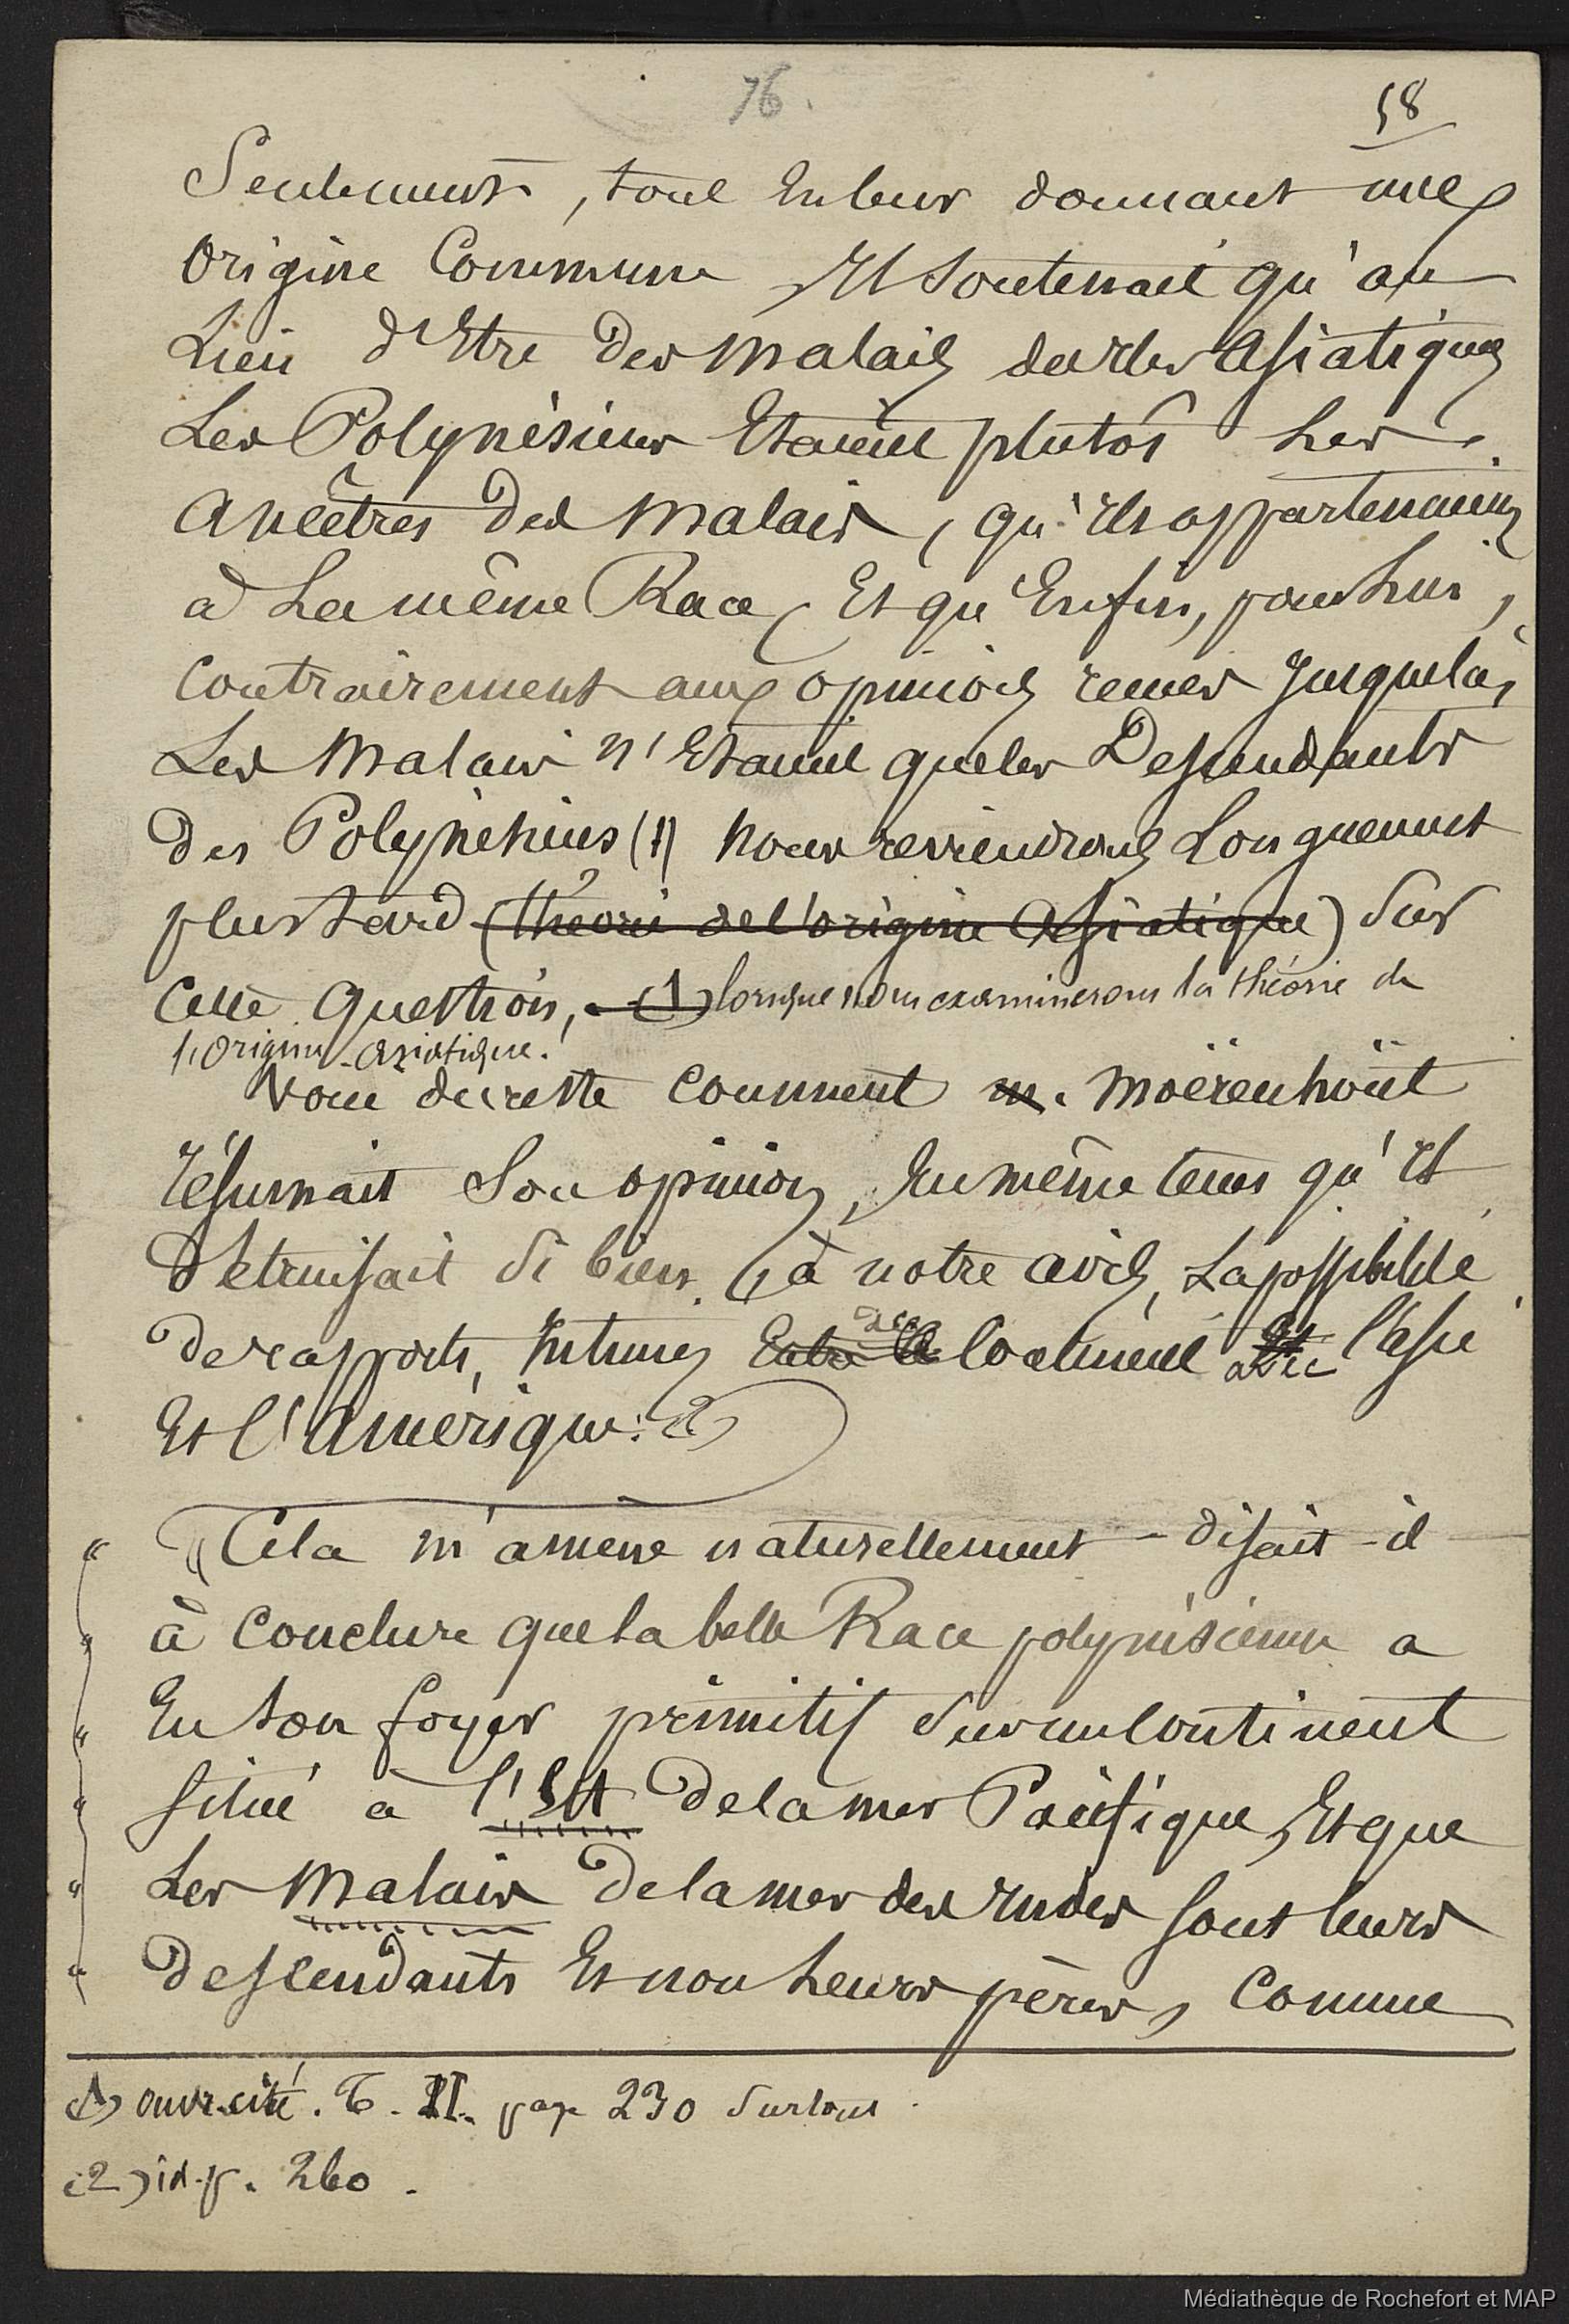 76.
58
Seulement, tout en leur donnant une
Origine Commune Il Soutenait qu'au
Lieu d'Etre des Malais ou des Asiatiques
Les Polynésiens Etaient plutôt Les
Ancêtres des Malais, qu'ils appartenaient
à La même Race, Et qu'Enfin, pour Lui,
Contrairement aux opinions recues Jusque là,
Les Malais n'Etaient que les Descendants
des Polynésiens (1) Nous reviendrons Longuement
plus tard (théorie de l'origine Asiatique) Sur
Cette Question, (1) lorsque nous examinerons la théorie de
l'Origine asiatique.
Voici du reste Comment M. Moërenhoüt
résumait Son opinion, En même tems qu'Il
Détruisait Si bien, à notre avis, La possibilité
de rapports, Intimes Entre le de Continent Et avec l'Asie
Et l'Amérique: (2)
"Cela m'amene naturellement - disait-il
à Conclure que la belle Race polynésienne a
Eu Son foyer primitif Sur un Continent
Situé à l'Est de la mer Pacifique, Et que
Les Malais de la mer des Indes Sont leurs
descendants Et non Leurs pères, Comme
(1) ouvr. cité. T. II. page 230 Surtout.
(2) id. p. 260.
Médiathèque de Rochefort et MAP